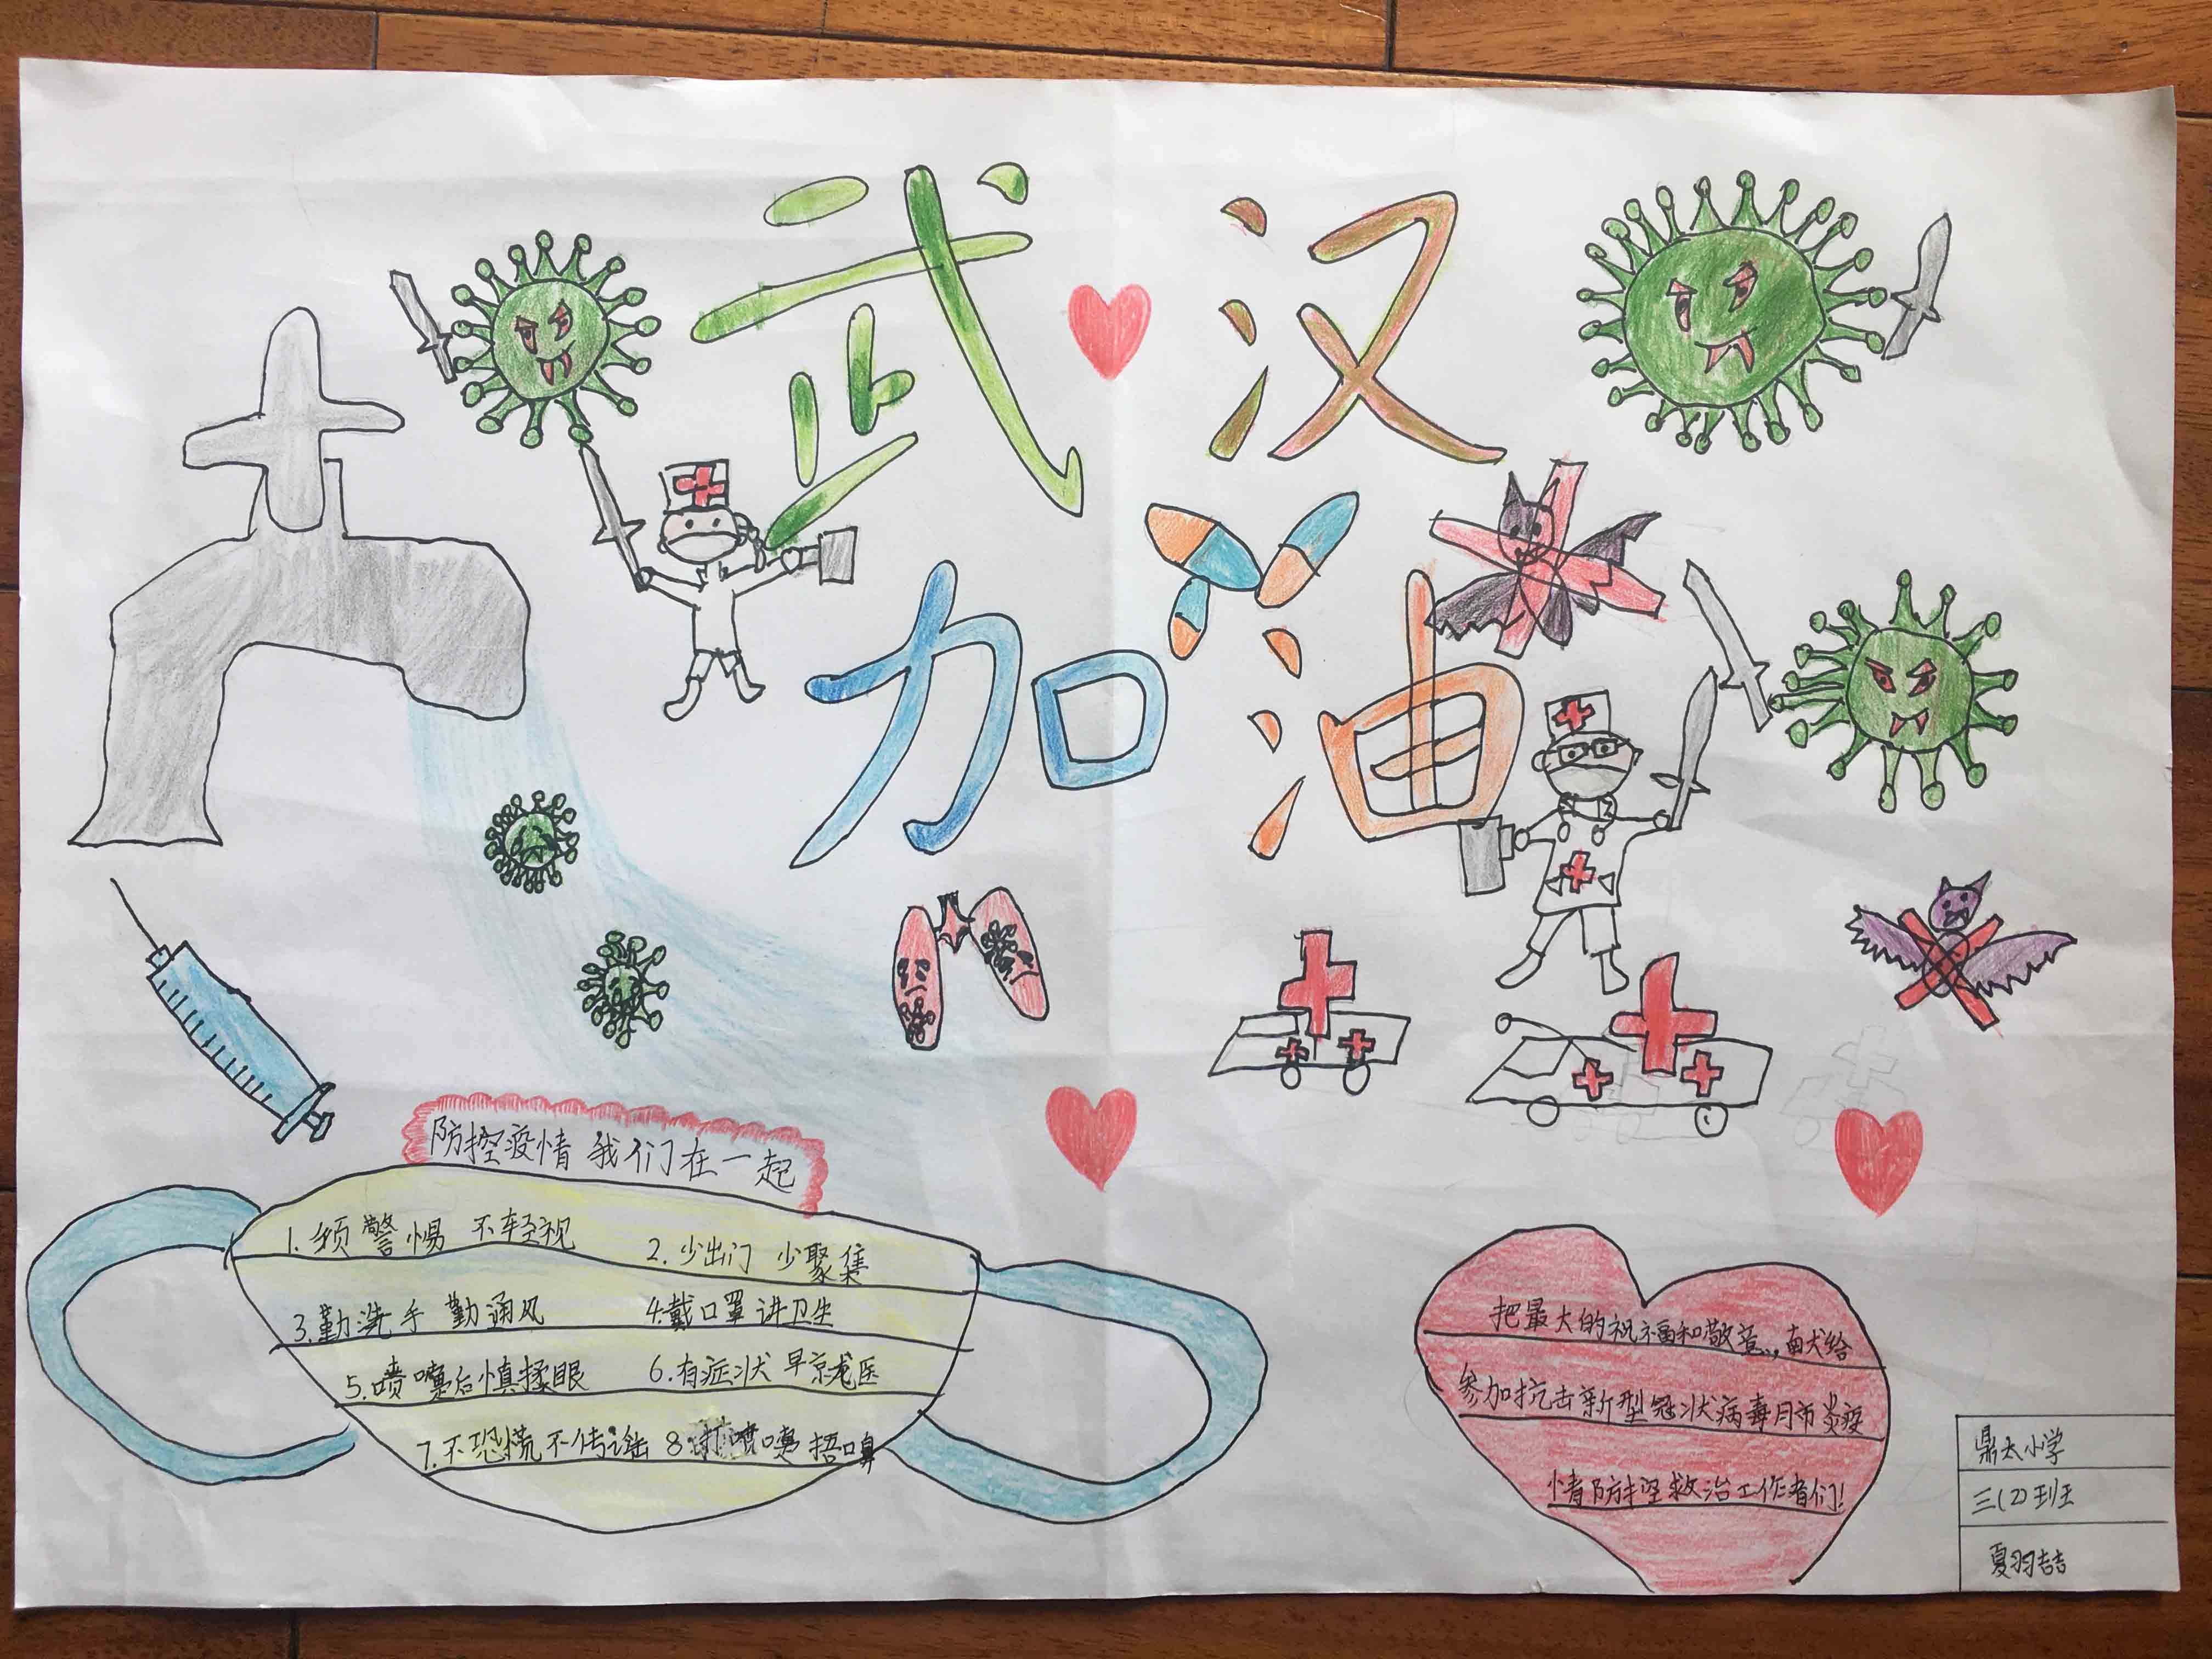 武汉
加油
防控疫情 我们在一起
1. 须警惕 不轻视
2. 少出门 少聚集
3. 勤洗手 勤通风
4. 戴口罩 讲卫生
5. 喷嚏后慎揉眼
6. 有症状 早就医
7. 不恐慌 不传谣
8. 打喷嚏 捂口鼻
把最大的祝福和敬意,献给
参加抗击新型冠状病毒肺炎疫
情防控救治工作者们!
鼎太小学
三(2)班
夏羽喆